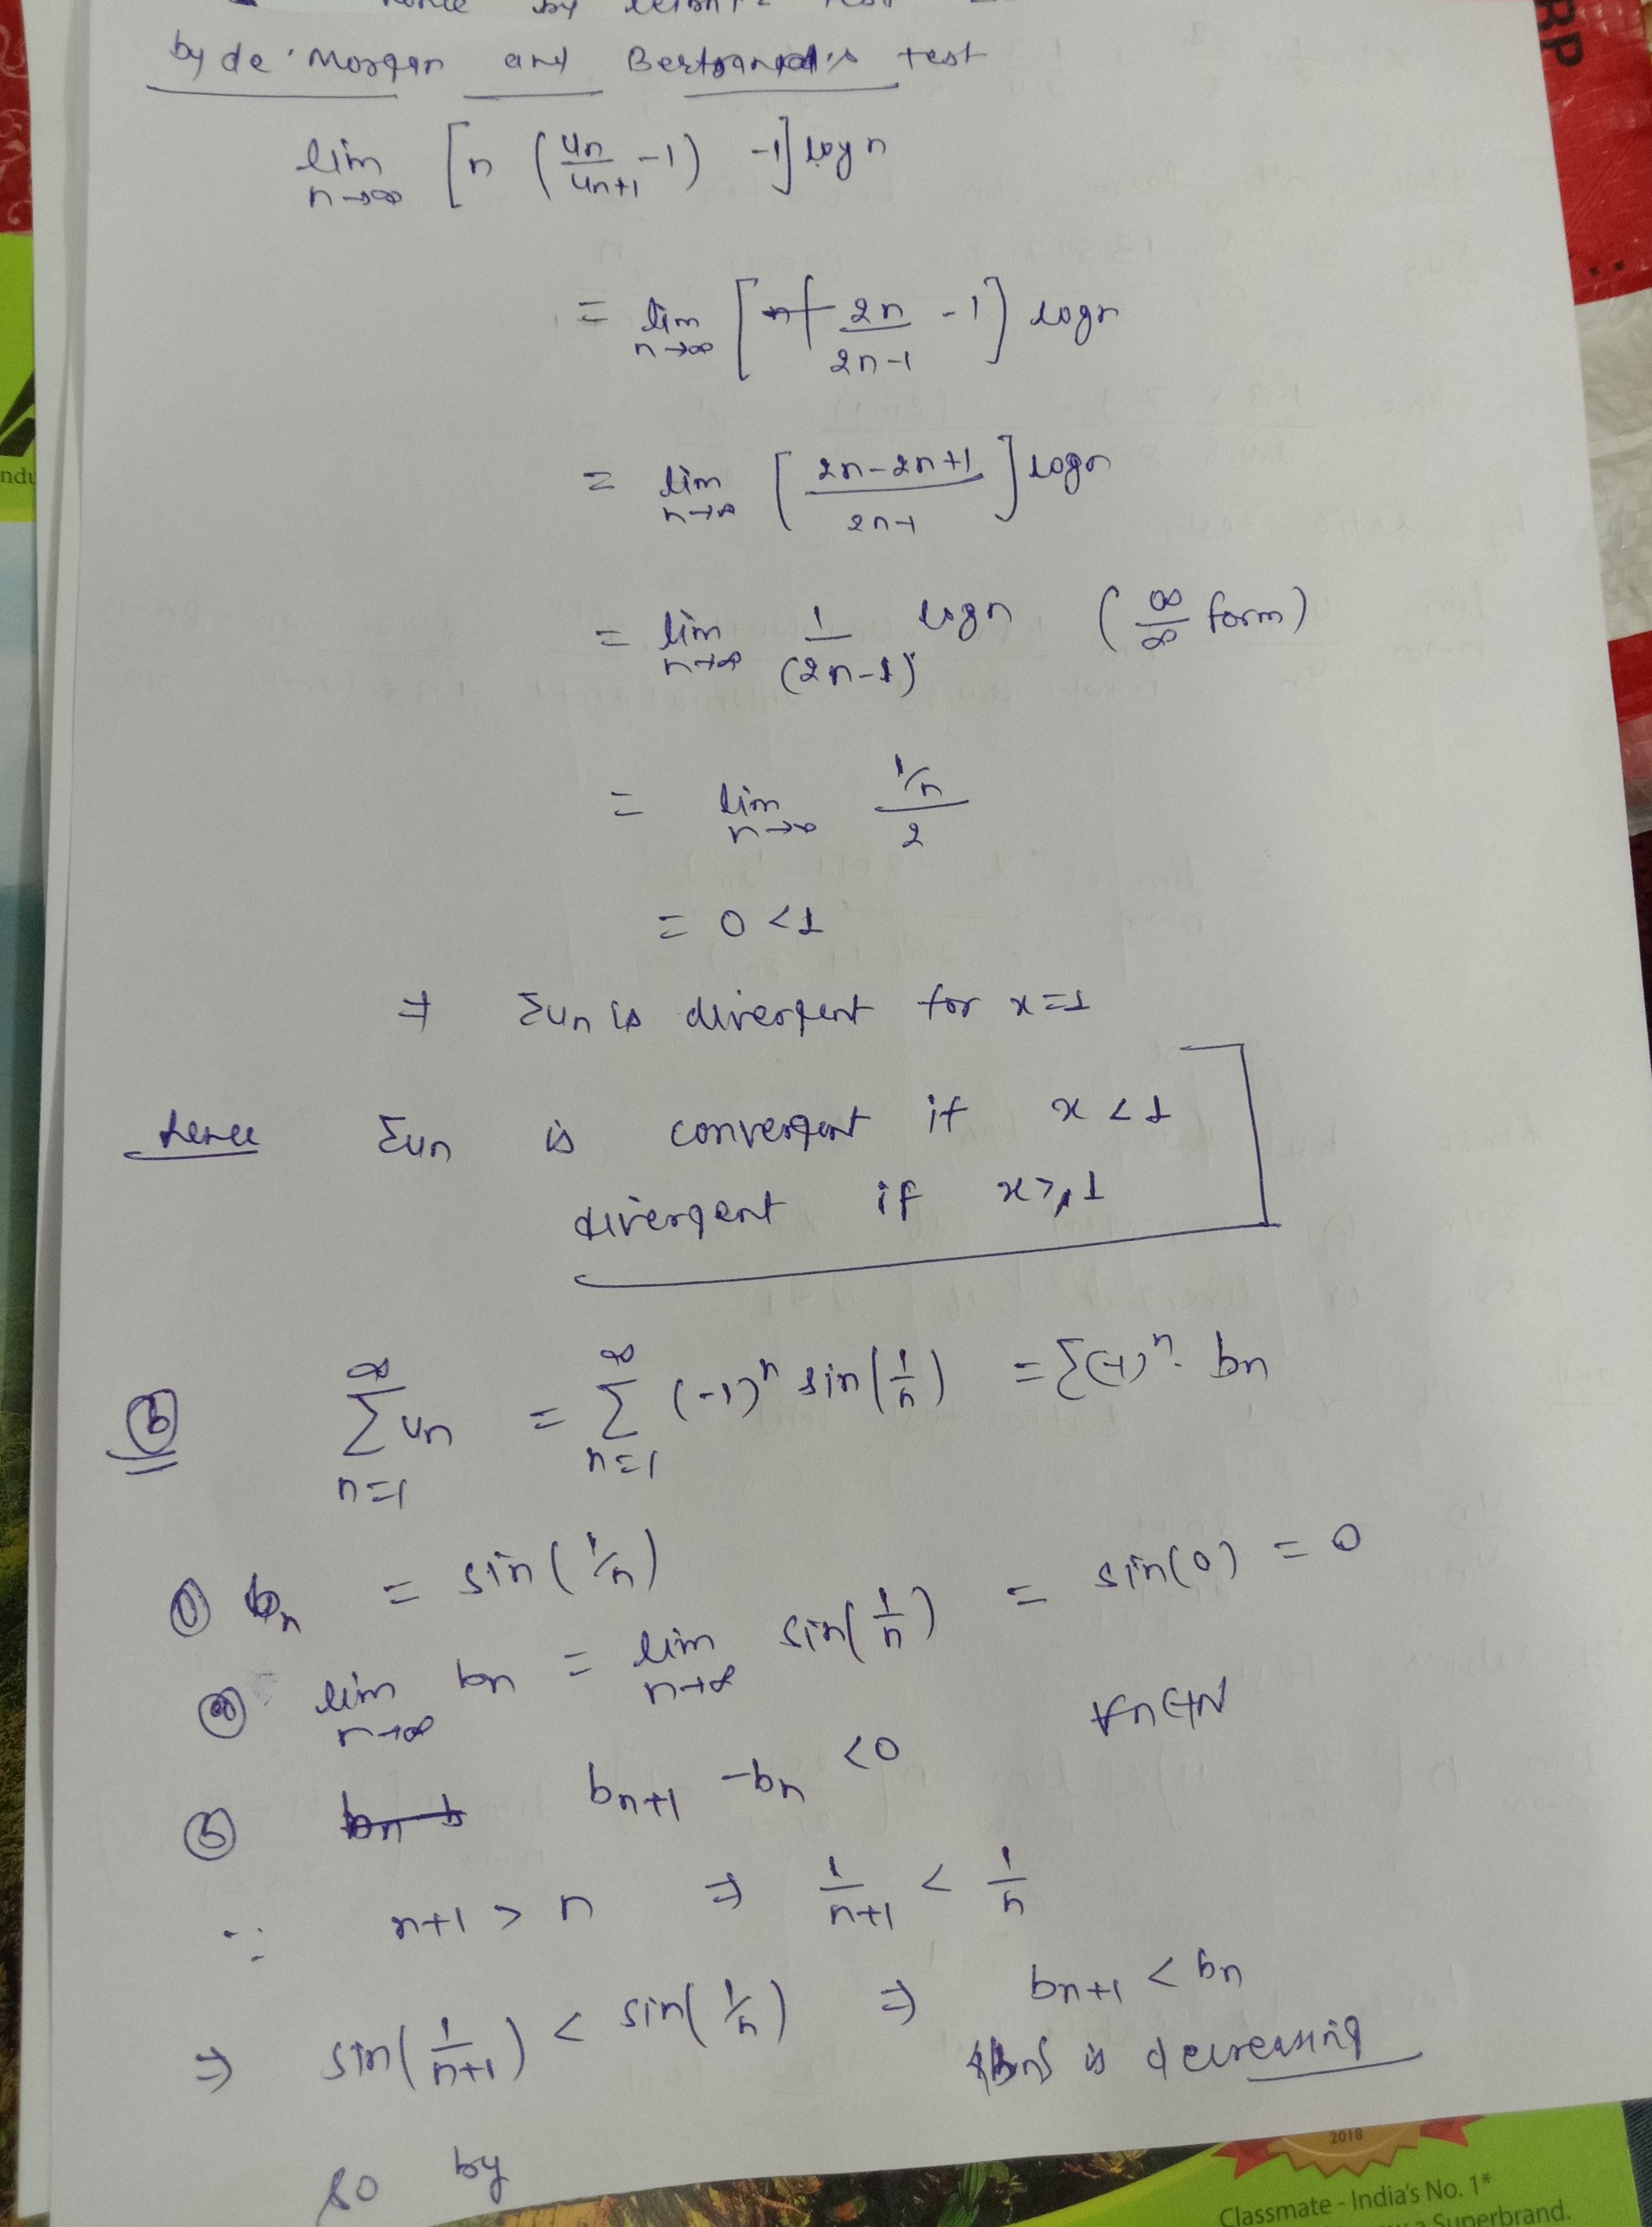 by de'Morgan and Bertrand's test
lim n→∞ [n (un/un+1 -1) -1] log n
= lim n→∞ [2n/2n-1 -1] log n
= lim n→∞ [2n-2n+1/2n-1] log n
= lim n→∞ 1/(2n-1) log n (∞/∞ form)
= lim n→∞ 1/n/2
= 0 < 1
⇒ Σun is divergent for x=1
Hence Σun is convergent if x < 1
divergent if x ≥ 1
(b) ∞ Σ n=1 un = ∞ Σ n=1 (-1)^n sin(1/n) = Σ(-1)^n. bn
① bn = sin(1/n)
② lim n→∞ bn = lim n→∞ sin(1/n) = sin(0) = 0
③ bn+1 -bn <0 ∀n∈N
∵ n+1 > n ⇒ 1/n+1 < 1/n
⇒ sin(1/n+1) < sin(1/n) ⇒ bn+1 < bn
is decreasing
so by
RP
2018
Classmate - India's No. 1*
a Superbrand.